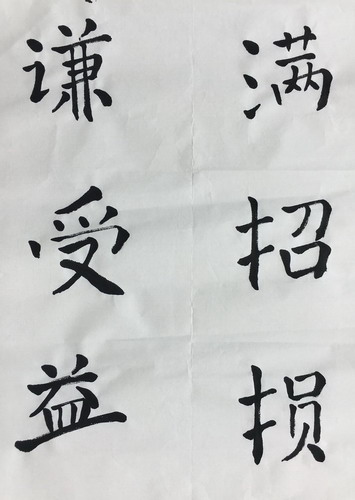 满招损
谦受益